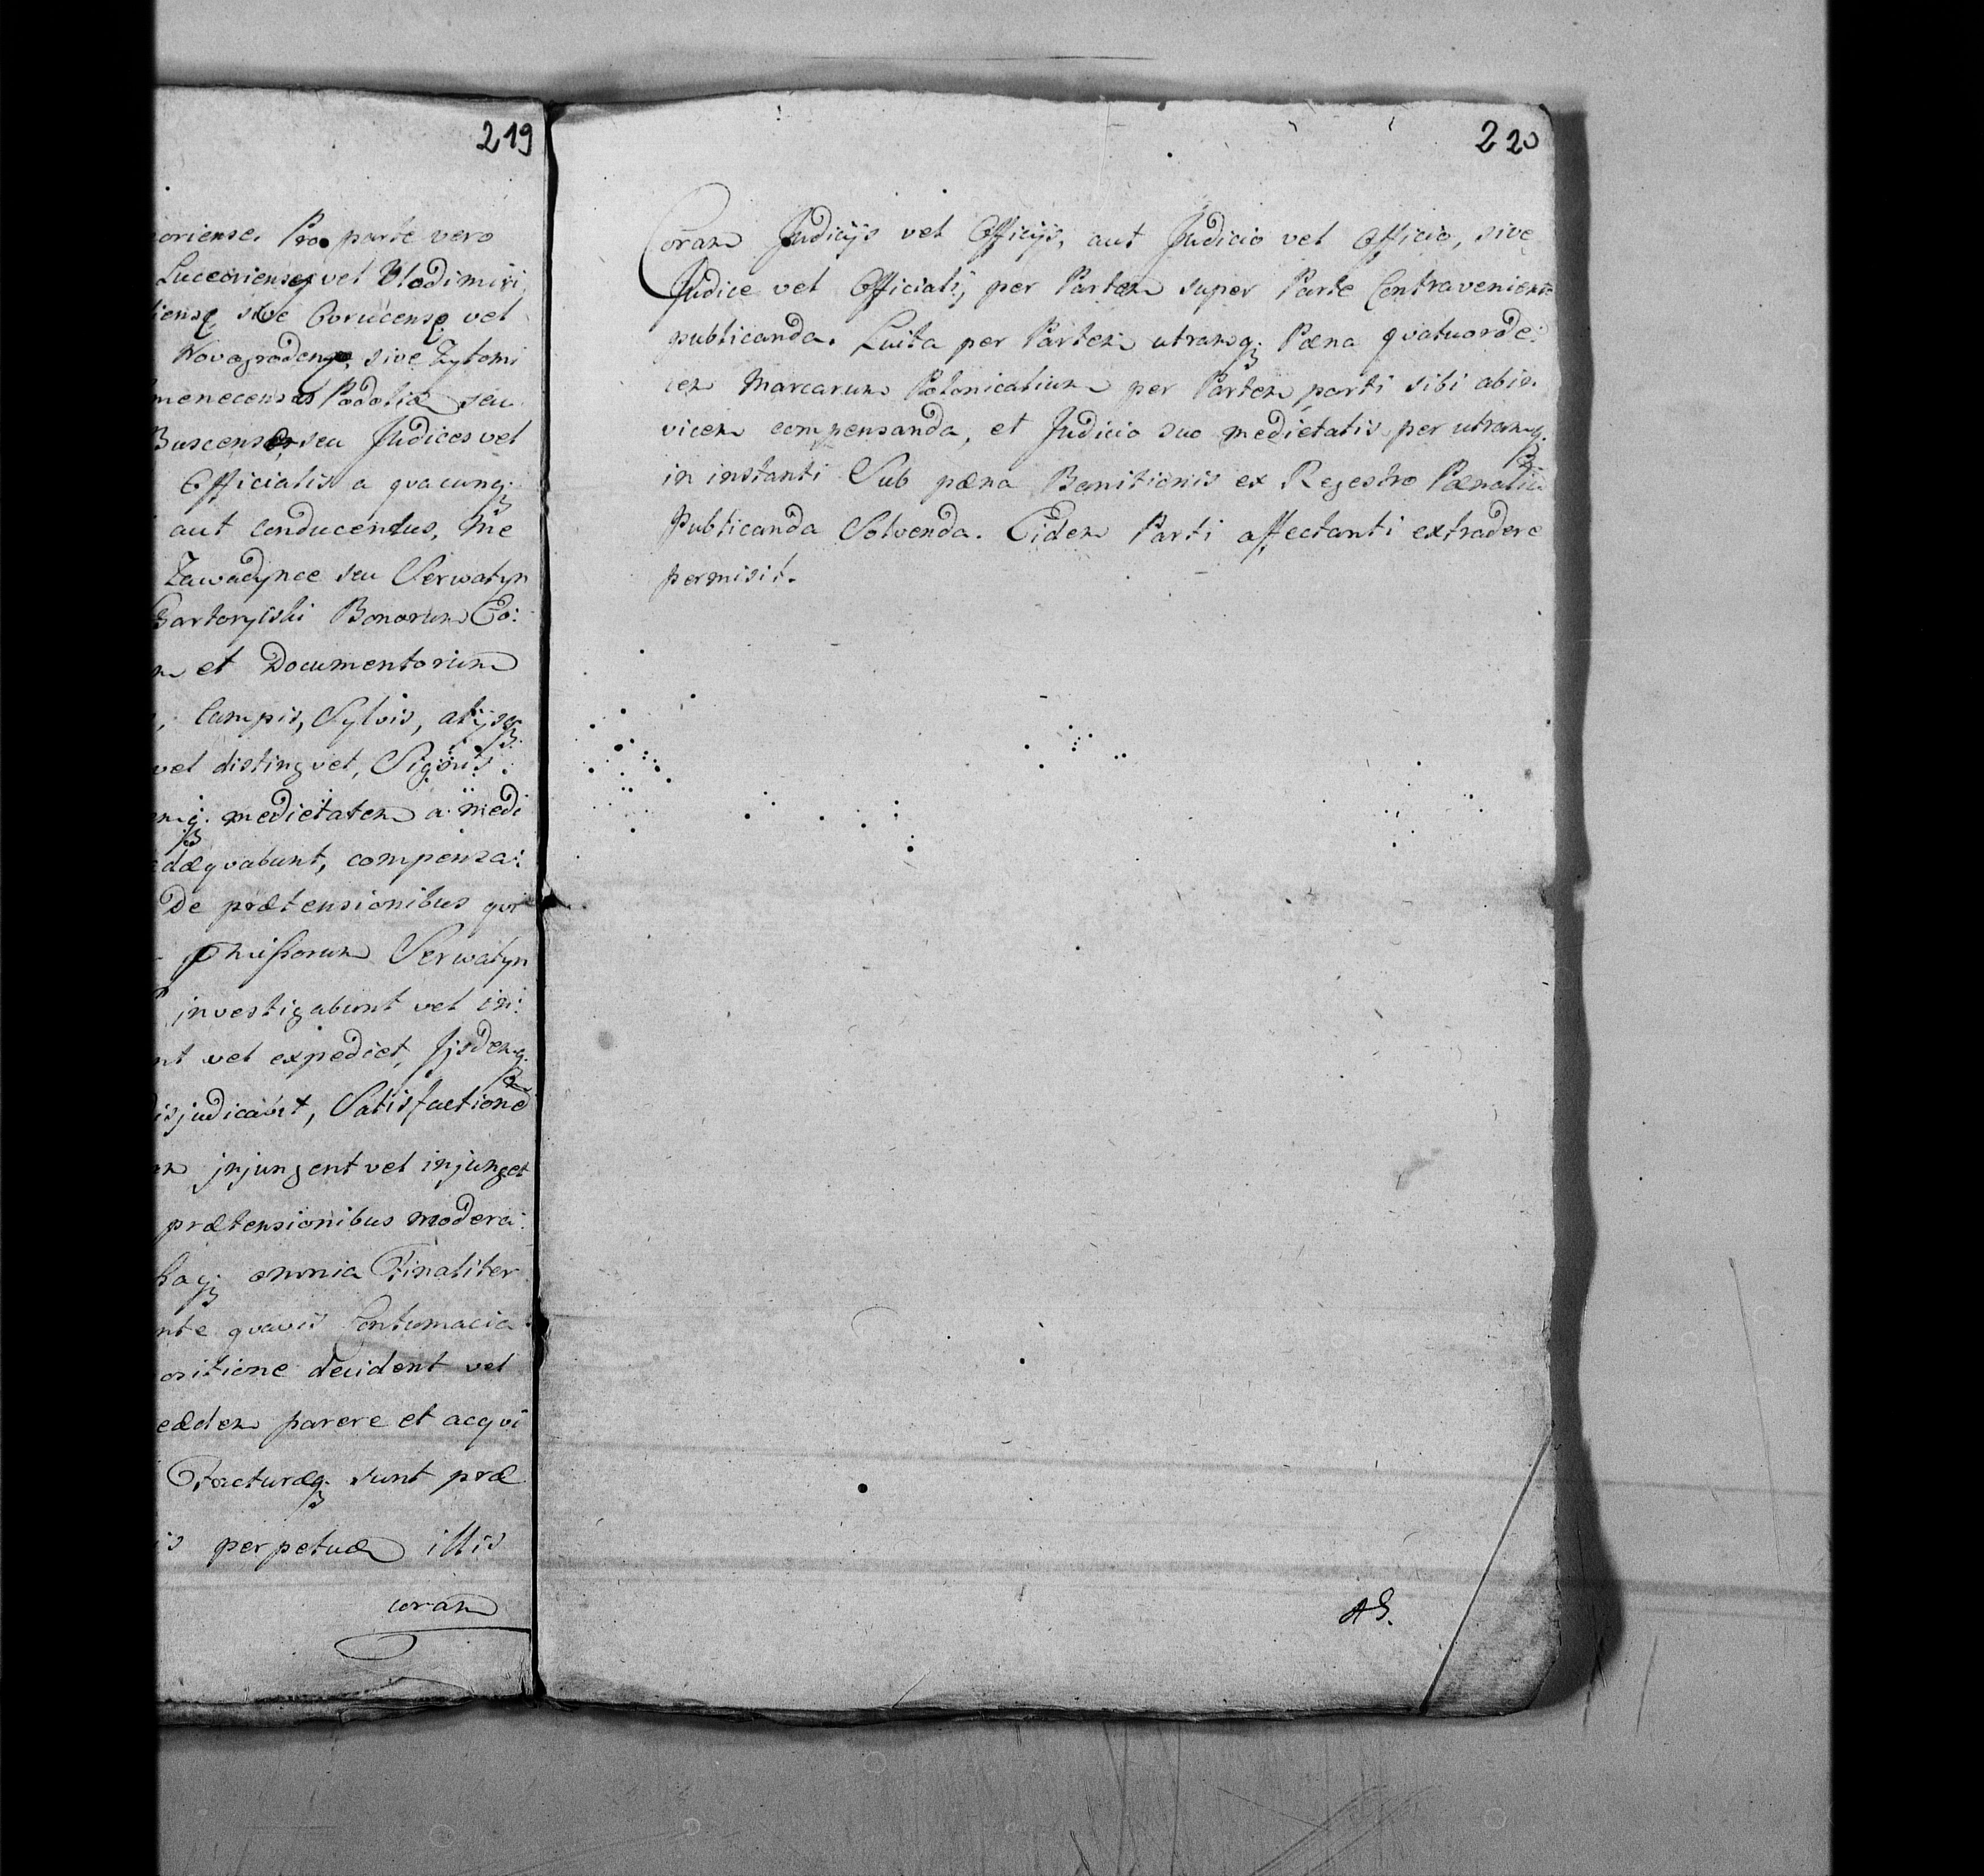 219
oriense. Pro parte vero
Luceoriense vel Vlodimiri,
iense sive Corucense vel
Novogrodense, sive Zytomi
menecenses Podoliæ seu
Buscense, seu Judices vel
Officialis a qvacunq;
aut conducendus, in
Zawadynce seu Serwatyn
Czartoryiski Bonorum Eo:
et Documentorum
Campis, Sylvis, alijsq;
vel distingvet, Signis
q; medietatem a medi
dæqvabunt, compensa:
De prætensionibus qvi
Serwatyn
investigabunt vel in:
nt vel expediet, Ijsdemq;
isjudicabit, Satisfactione
m injungent vel injunget
prætensionibus modera:
haq; omnia Finaliter
nte qvavis Contumacia
ositione decident vel
eædem parere et acqvi
Facturæq; sunt præ
is perpetuæ illis
coram
220
Coram Judicijs vel Officijs, aut Judicio vel Officio, sive
Judice vel Officiali, per Partem super Parte Contraveniente
publicanda. Luita per Partem utramq; Pæna qvatuorde:
cem Marcarum Polonicalium per Partem parti sibi abin
vicem compensanda, et Judicio suo medietatis per utramq;
in instanti Sub pæna Banitionis ex Regestro Pænalium
Publicanda Solvenda. Eidem Parti affectanti extradere
permisit.